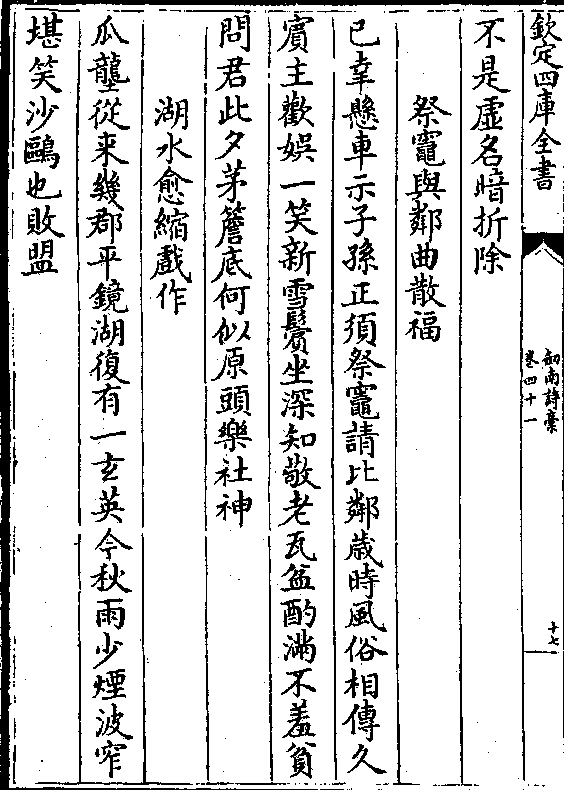 欽定四庫全書
劒南詩藁
卷四十一
十七
不是虛名暗折除
祭竈與鄰曲散福
已幸懸車示子孫正須祭竈請比鄰歳時風俗相傳久
賔主歡娱一笑新雪鬢坐深知敬老瓦盆酌滿不羞貧
問君此夕茅簷底何似原頭樂社神
湖水愈縮戲作
瓜壟從来幾郡平鏡湖復有一玄英今秋雨少煙波窄
堪笑沙鷗也敗盟